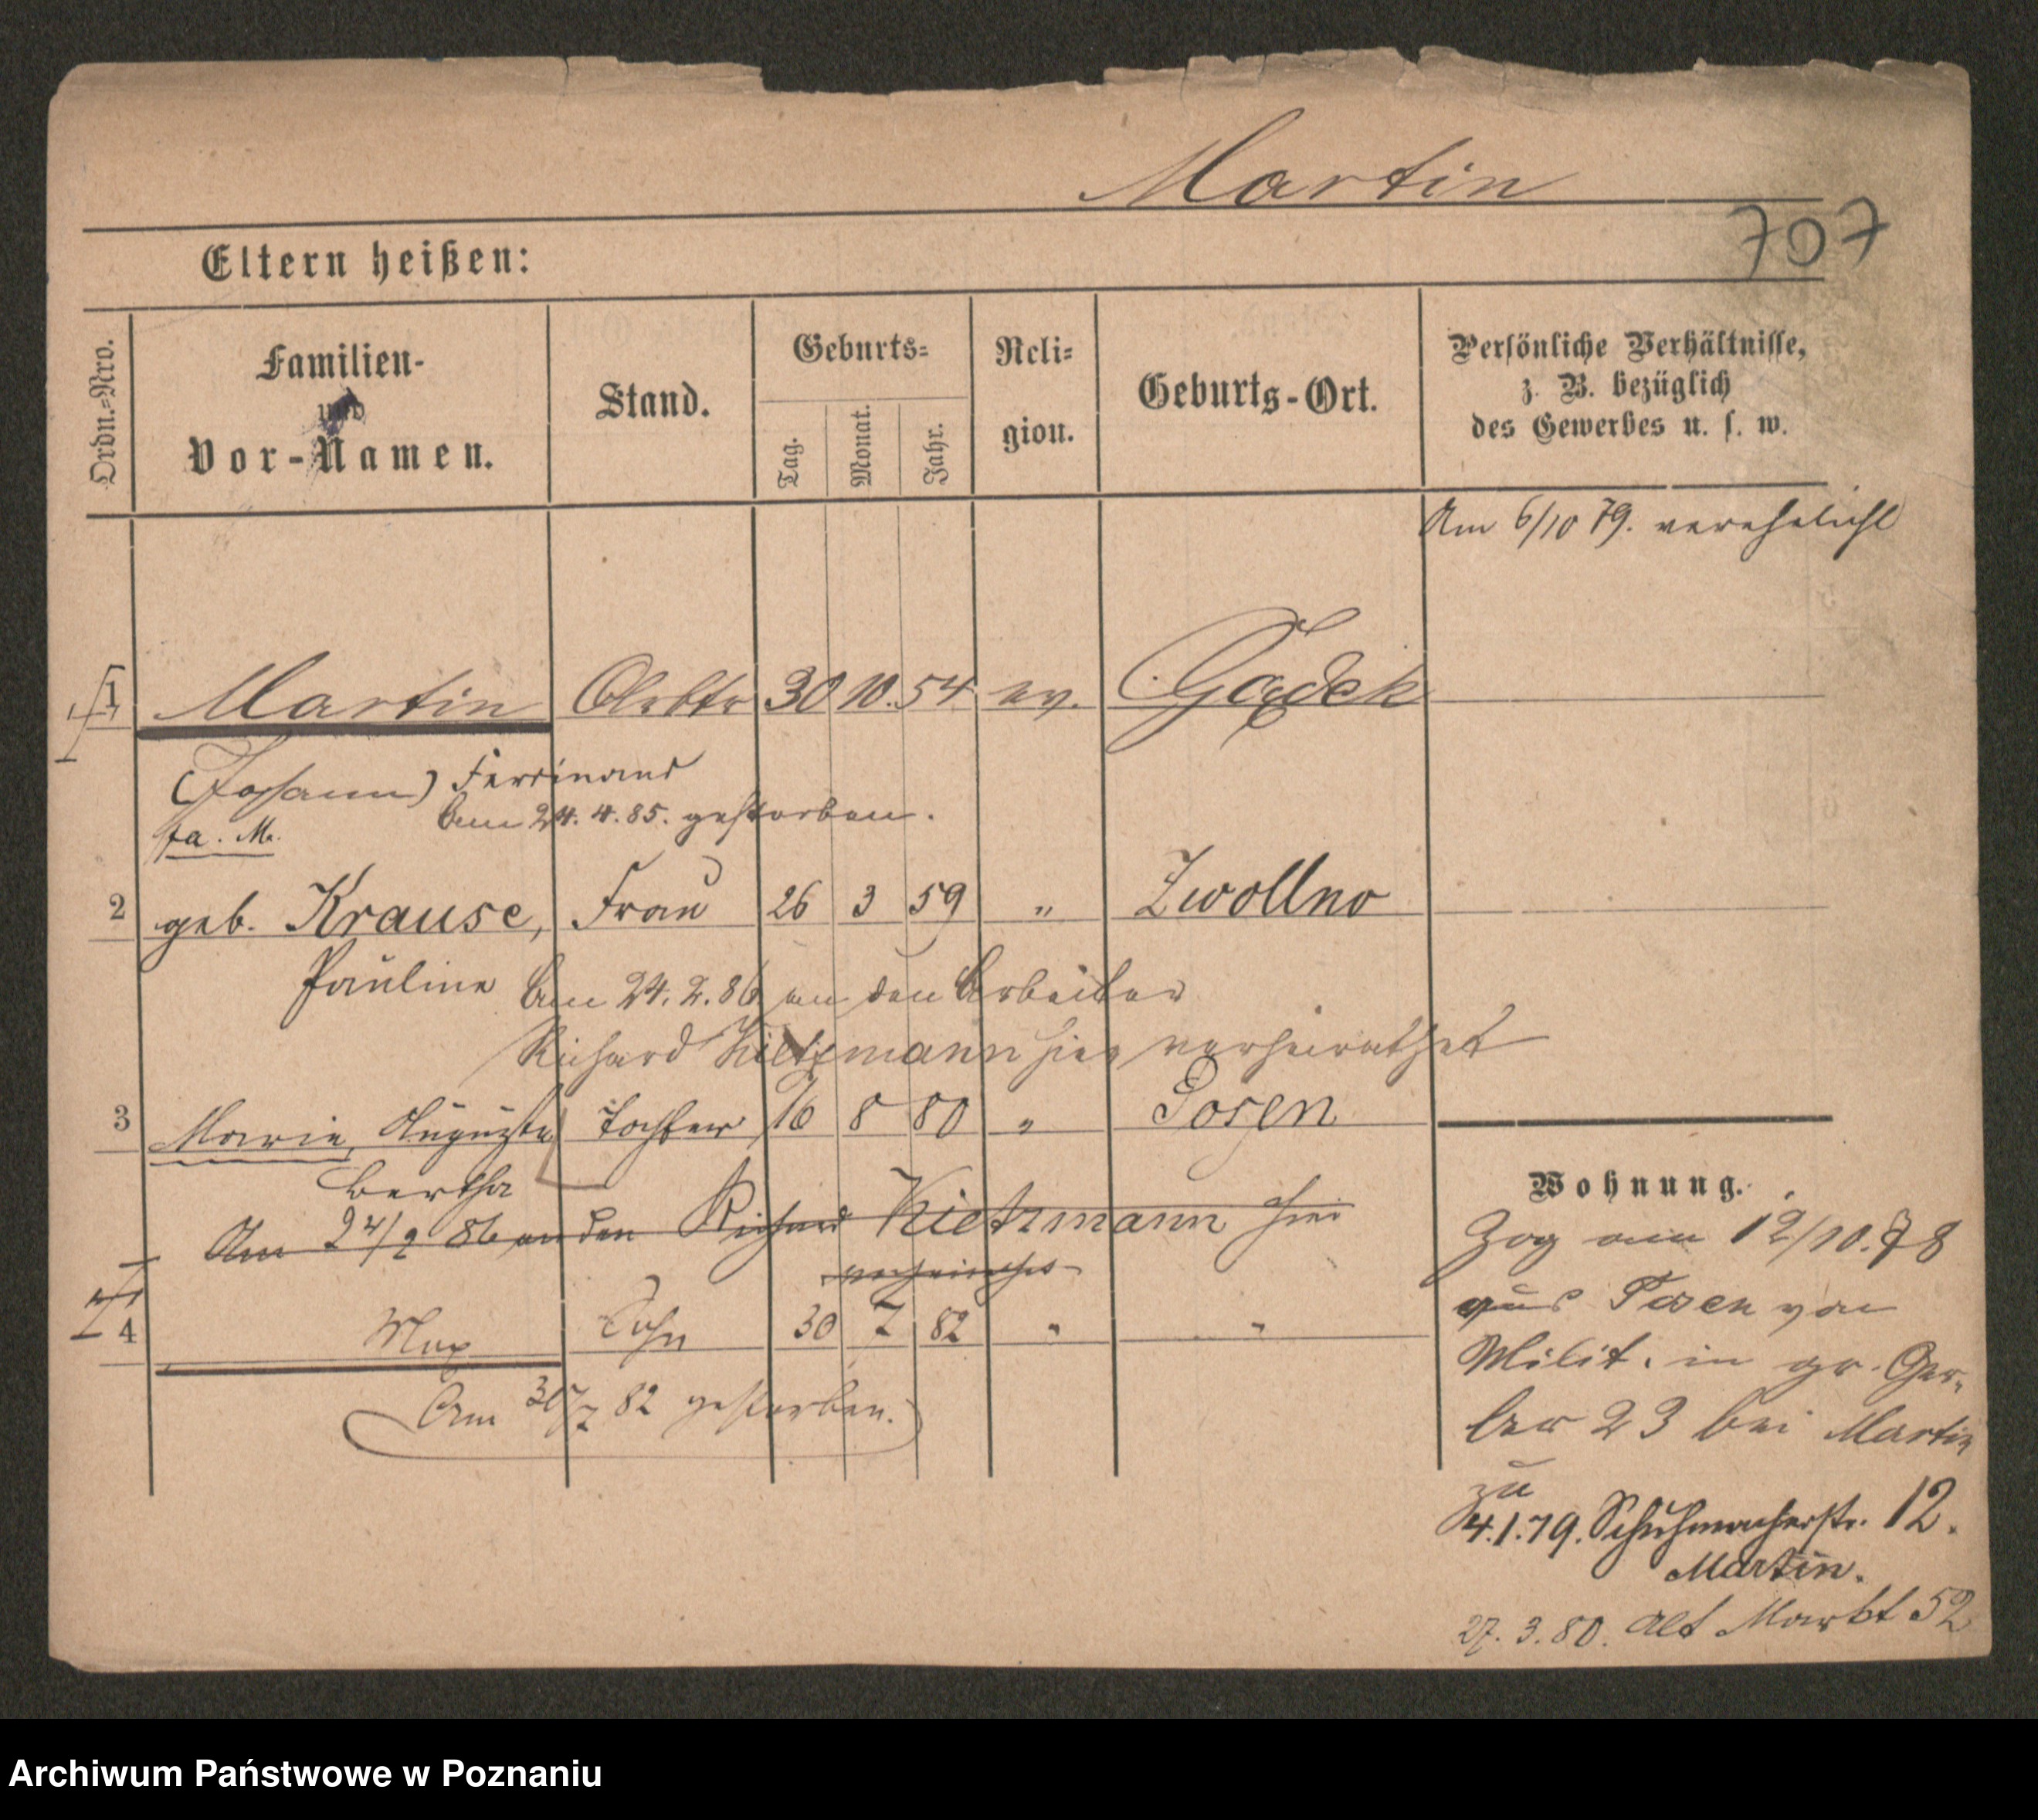 Martin
707
Eltern heißen:
Ordn.=Nro.
Familien-
und
Vor-Namen.
Stand.
Geburts=
Tag.
Monat.
Jahr.
Reli=
gion.
Geburts-Ort.
Persönliche Verhältnisse,
z. B. bezüglich
des Gewerbes u. s. w.
Am 6/10 79. verehelicht
1 Martin Arbtr 30 10. 54 ev. Gądek
(Johann) Ferdinand
Am 24. 4. 85. gestorben.
2 geb. Krause, Frau 26 3 59 " Zwollno
Pauline Am 24. 2. 86 an den Arbeiter
Richard Kietzmann hier verheirathet
3 Marie, Auguste Tochter 16 8 80 " Posen
Bertha
Am 24/2 86 an den Richard Kietzmann hier
4 Max Sohn 30 7 82 " "
Am 30/7 82 gestorben.
Wohnung.
Zog am 12/10. 78
aus Posen von
Milit. in gr. Ger-
ber 23 bei Martin
zu
4.1.79. Schuhmacherstr. 12.
Martin.
27. 3. 80. Alt Markt 52
Archiwum Państwowe w Poznaniu